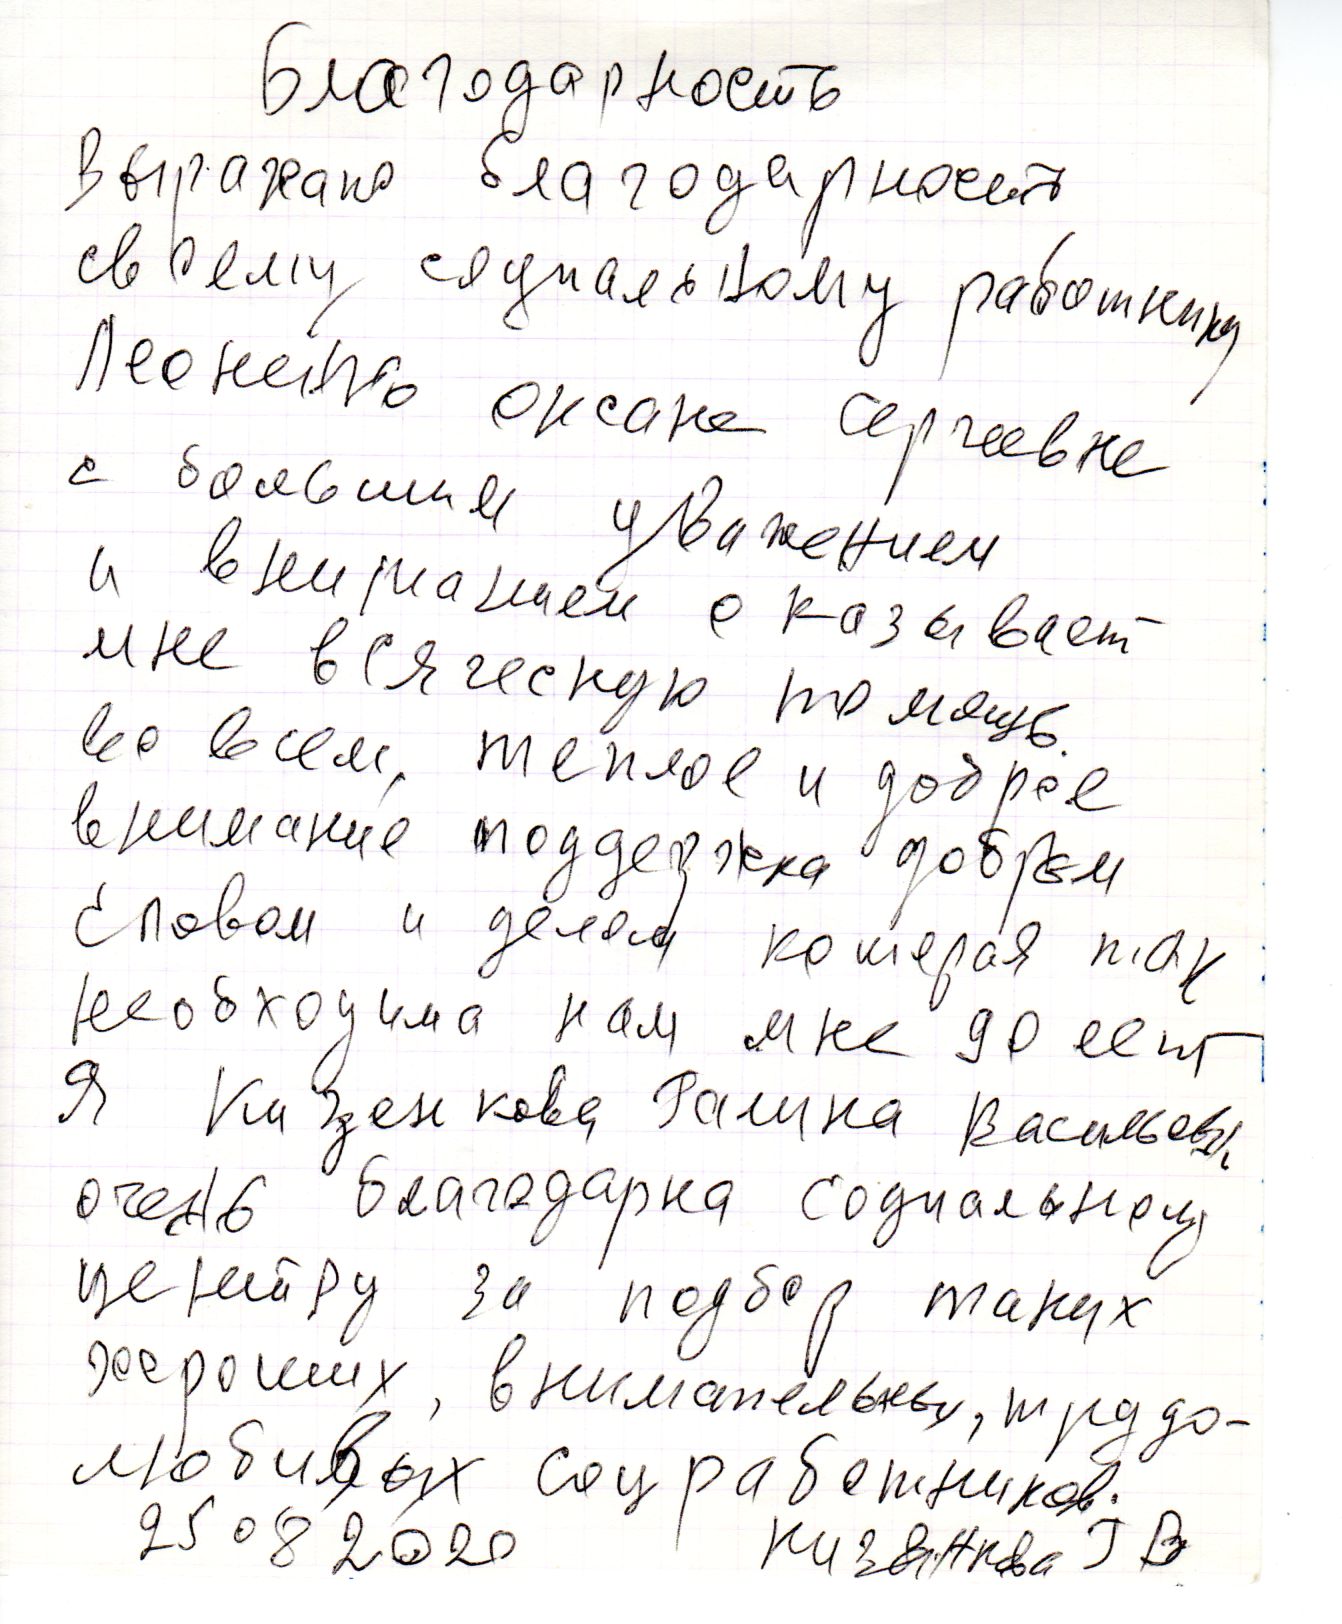 Благодарность
Выражаю благодарность
своему социальному работнику
Оксане Сергеевне
с большим уважением
и вниманием оказывает
мне всяческую помощь
во всем, теплое и доброе
внимание поддержка добрым
словом и делом которая так
необходима нам мне 90 лет
Я Галина Васильевн
очень благодарна социальному
центру за подбор таких
хороших, внимательных, трудо-
любивых соцработников.
25 08 2020 Г В